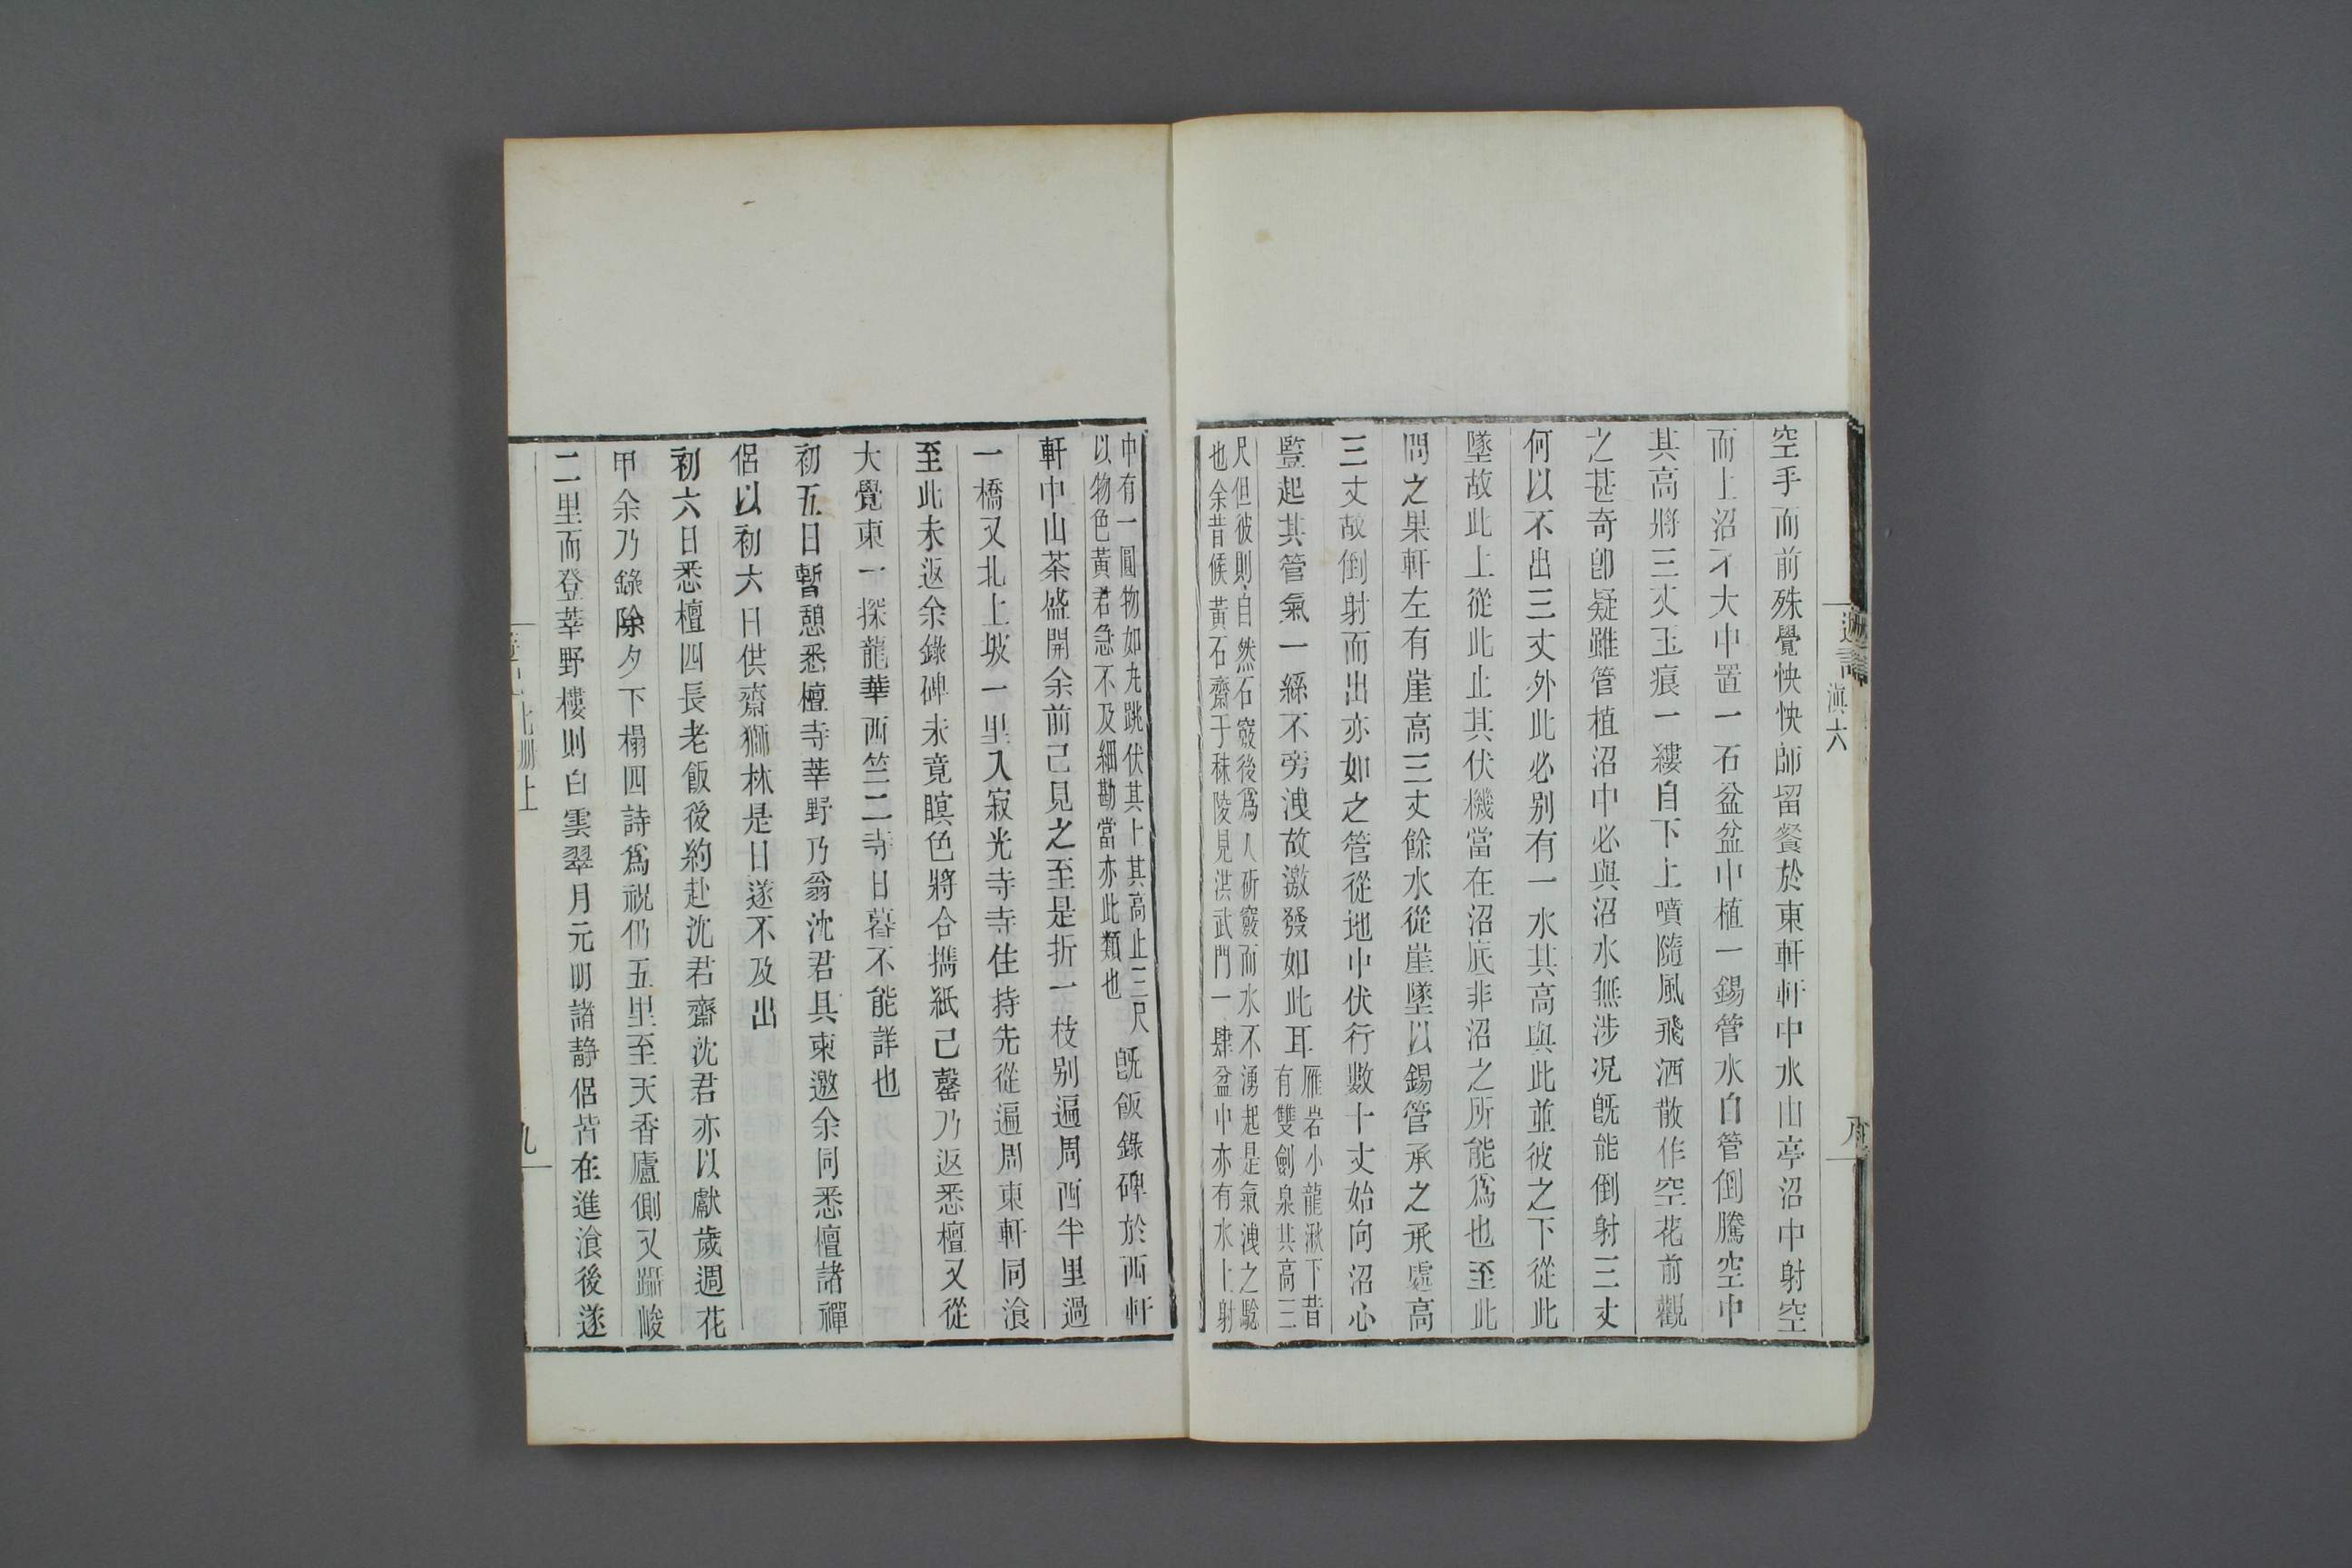 滇六
空手而前殊覺怏怏師留餐於東軒軒中水由亭沼中射空
而上沼不大中置一石盆盆中植一錫管水自管倒騰空中
其高將三丈玉痕一縷自下上噴隨風飛洒散作空花前觀
之甚奇卽疑雖管植沼中必與沼水無涉况旣能倒射三丈
何以不出三丈外此必别有一水其高與此並彼之下從此
墜故此上從此止其伏機當在沼底非沼之所能爲也至此
問之果軒左有崖高三丈餘水從崖墜以錫管承之承處高
三丈故倒射而出亦如之管從地中伏行數十丈始向沼心
豎起其管氣一絲不旁洩故激發如此耳 雁岩小龍湫下昔
有雙劍泉其高三
尺但彼則自然石竅後爲人斫竅而水不湧起是氣洩之驗
也余昔候黃石齋于秣陵見洪武門一肆盆中亦有水上射
中有一圓物如丸跳伏其上其高止三尺
以物色黃君急不及細勘當亦此類也
旣飯錄碑於西軒
軒中山茶盛開余前已見之至是折一枝别遍周西半里過
一橋又北上坡一里入寂光寺寺住持先從遍周東軒同飡
至此未返余錄碑未竟瞑色將合擕紙已罄乃返悉檀又從
大覺東一探龍華西竺二寺日暮不能詳也
初五日暫憩悉檀寺莘野乃翁沈君具柬邀余同悉檀諸禪
侶以初六日供齋獅林是日遂不及出
初六日悉檀四長老飯後約赴沈君齋沈君亦以獻歲週花
甲余乃錄除夕下榻四詩爲祝仍五里至天香廬側又躡峻
二里而登莘野樓則白雲翠月元明諸静侶皆在進飡後遂
七册上
九